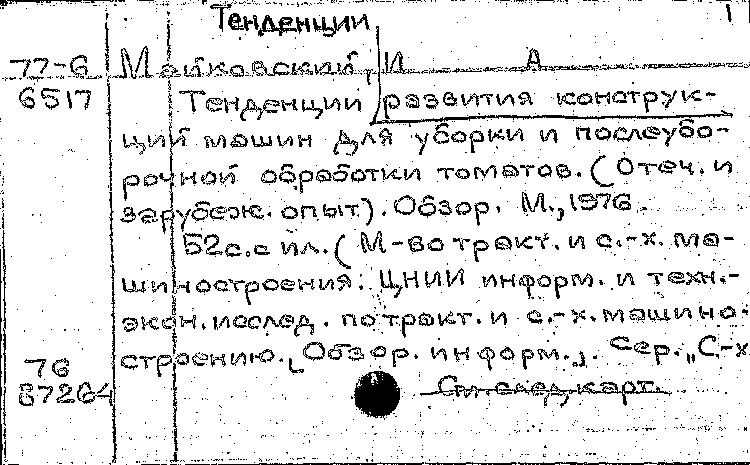 Тенденции
1
77-6 Майковский, И А
6517 Тенденции развития конструк-
ций машин для уборки и послеубо-
рочной обработки томатов. (Отеч. и
зарубеж. опыт). Обзор. М., 1976.
52 с. с ил. (М-во тракт. и с.-х. ма-
шиностроения. ЦНИИ информ. и техн.-
экон. исслед. по тракт. и с.-х. машино-
строению. „Обзор. информ.". Сер. „С.-х
76
87264
См след карт.